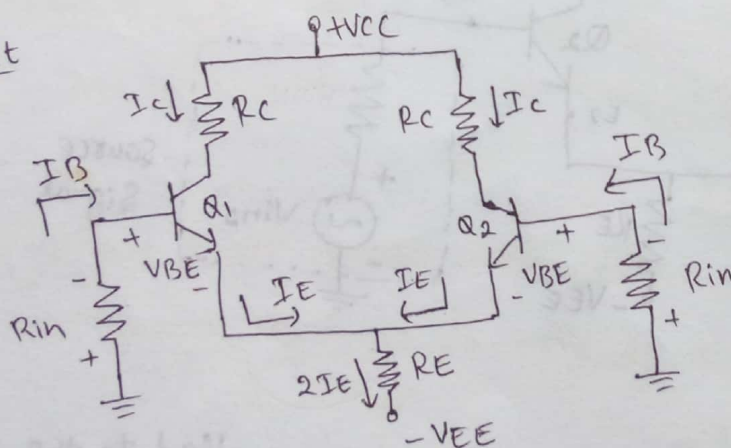 t
+VCC
IC RC RC IC
IB IB
Q1 Q2
+ VBE - + VBE -
- Rin + - Rin +
IE IE
2IE RE
-VEE